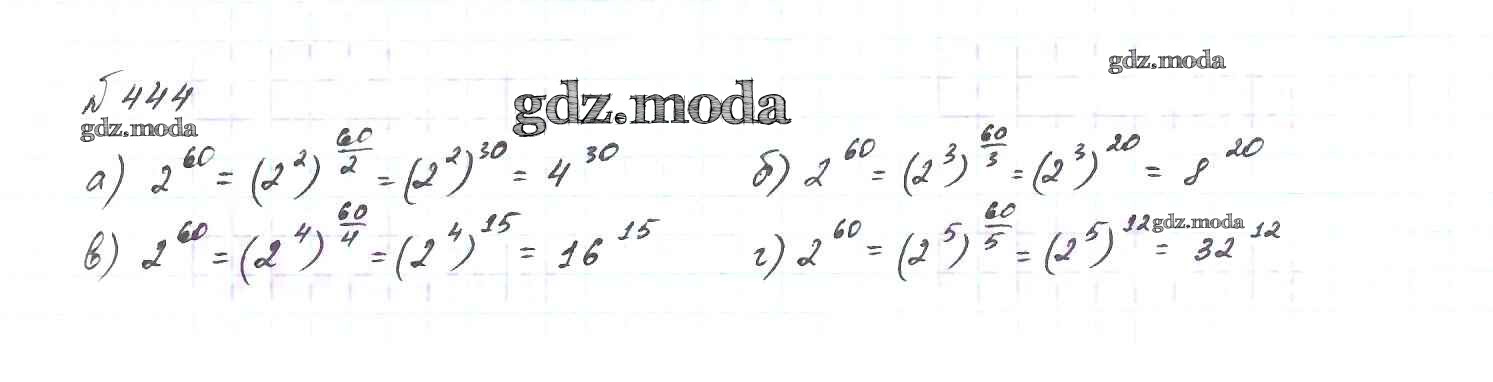 gdz.moda
№ 444
gdz.moda
gdz.moda
а) 2^60 = (2^2)^(60/2) = (2^2)^30 = 4^30
б) 2^60 = (2^3)^(60/3) = (2^3)^20 = 8^20
в) 2^60 = (2^4)^(60/4) = (2^4)^15 = 16^15
г) 2^60 = (2^5)^(60/5) = (2^5)^12 = 32^12
gdz.moda